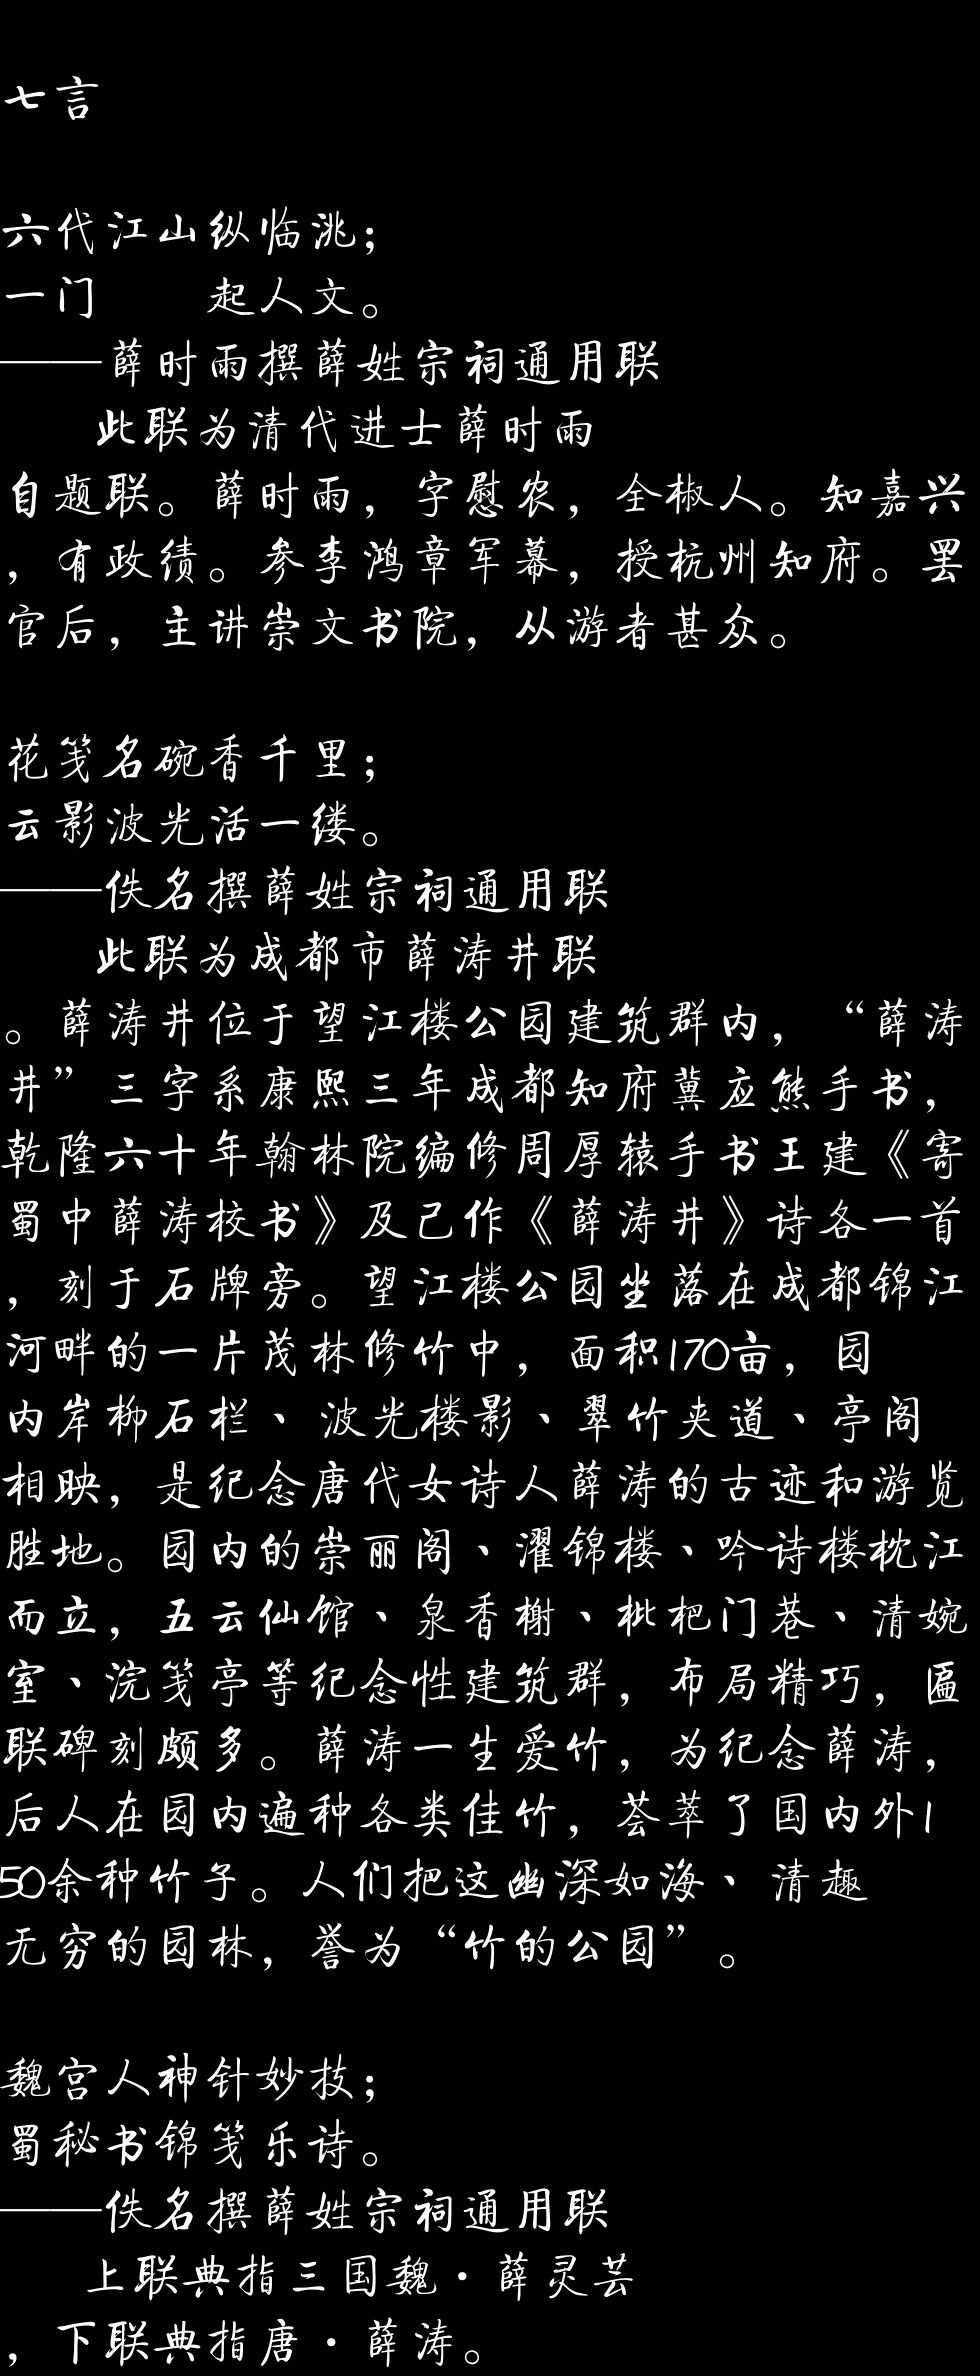 七言
六代江山纵临洮；
一门　　起人文。
——薛时雨撰薛姓宗祠通用联
此联为清代进士薛时雨
自题联。薛时雨，字慰农，全椒人。知嘉兴
，有政绩。参李鸿章军幕，授杭州知府。罢
官后，主讲崇文书院，从游者甚众。
花笺名碗香千里；
云影波光活一缕。
——佚名撰薛姓宗祠通用联
此联为成都市薛涛井联
。薛涛井位于望江楼公园建筑群内，“薛涛
井”三字系康熙三年成都知府冀应熊手书，
乾隆六十年翰林院编修周厚辕手书王建《寄
蜀中薛涛校书》及己作《薛涛井》诗各一首
，刻于石牌旁。望江楼公园坐落在成都锦江
河畔的一片茂林修竹中，面积170亩，园
内岸柳石栏、波光楼影、翠竹夹道、亭阁
相映，是纪念唐代女诗人薛涛的古迹和游览
胜地。园内的崇丽阁、濯锦楼、吟诗楼枕江
而立，五云仙馆、泉香榭、枇杷门巷、清婉
室、浣笺亭等纪念性建筑群，布局精巧，匾
联碑刻颇多。薛涛一生爱竹，为纪念薛涛，
后人在园内遍种各类佳竹，荟萃了国内外1
50余种竹子。人们把这幽深如海、清趣
无穷的园林，誉为“竹的公园”。
魏宫人神针妙技；
蜀秘书锦笺乐诗。
——佚名撰薛姓宗祠通用联
上联典指三国魏·薛灵芸
，下联典指唐·薛涛。